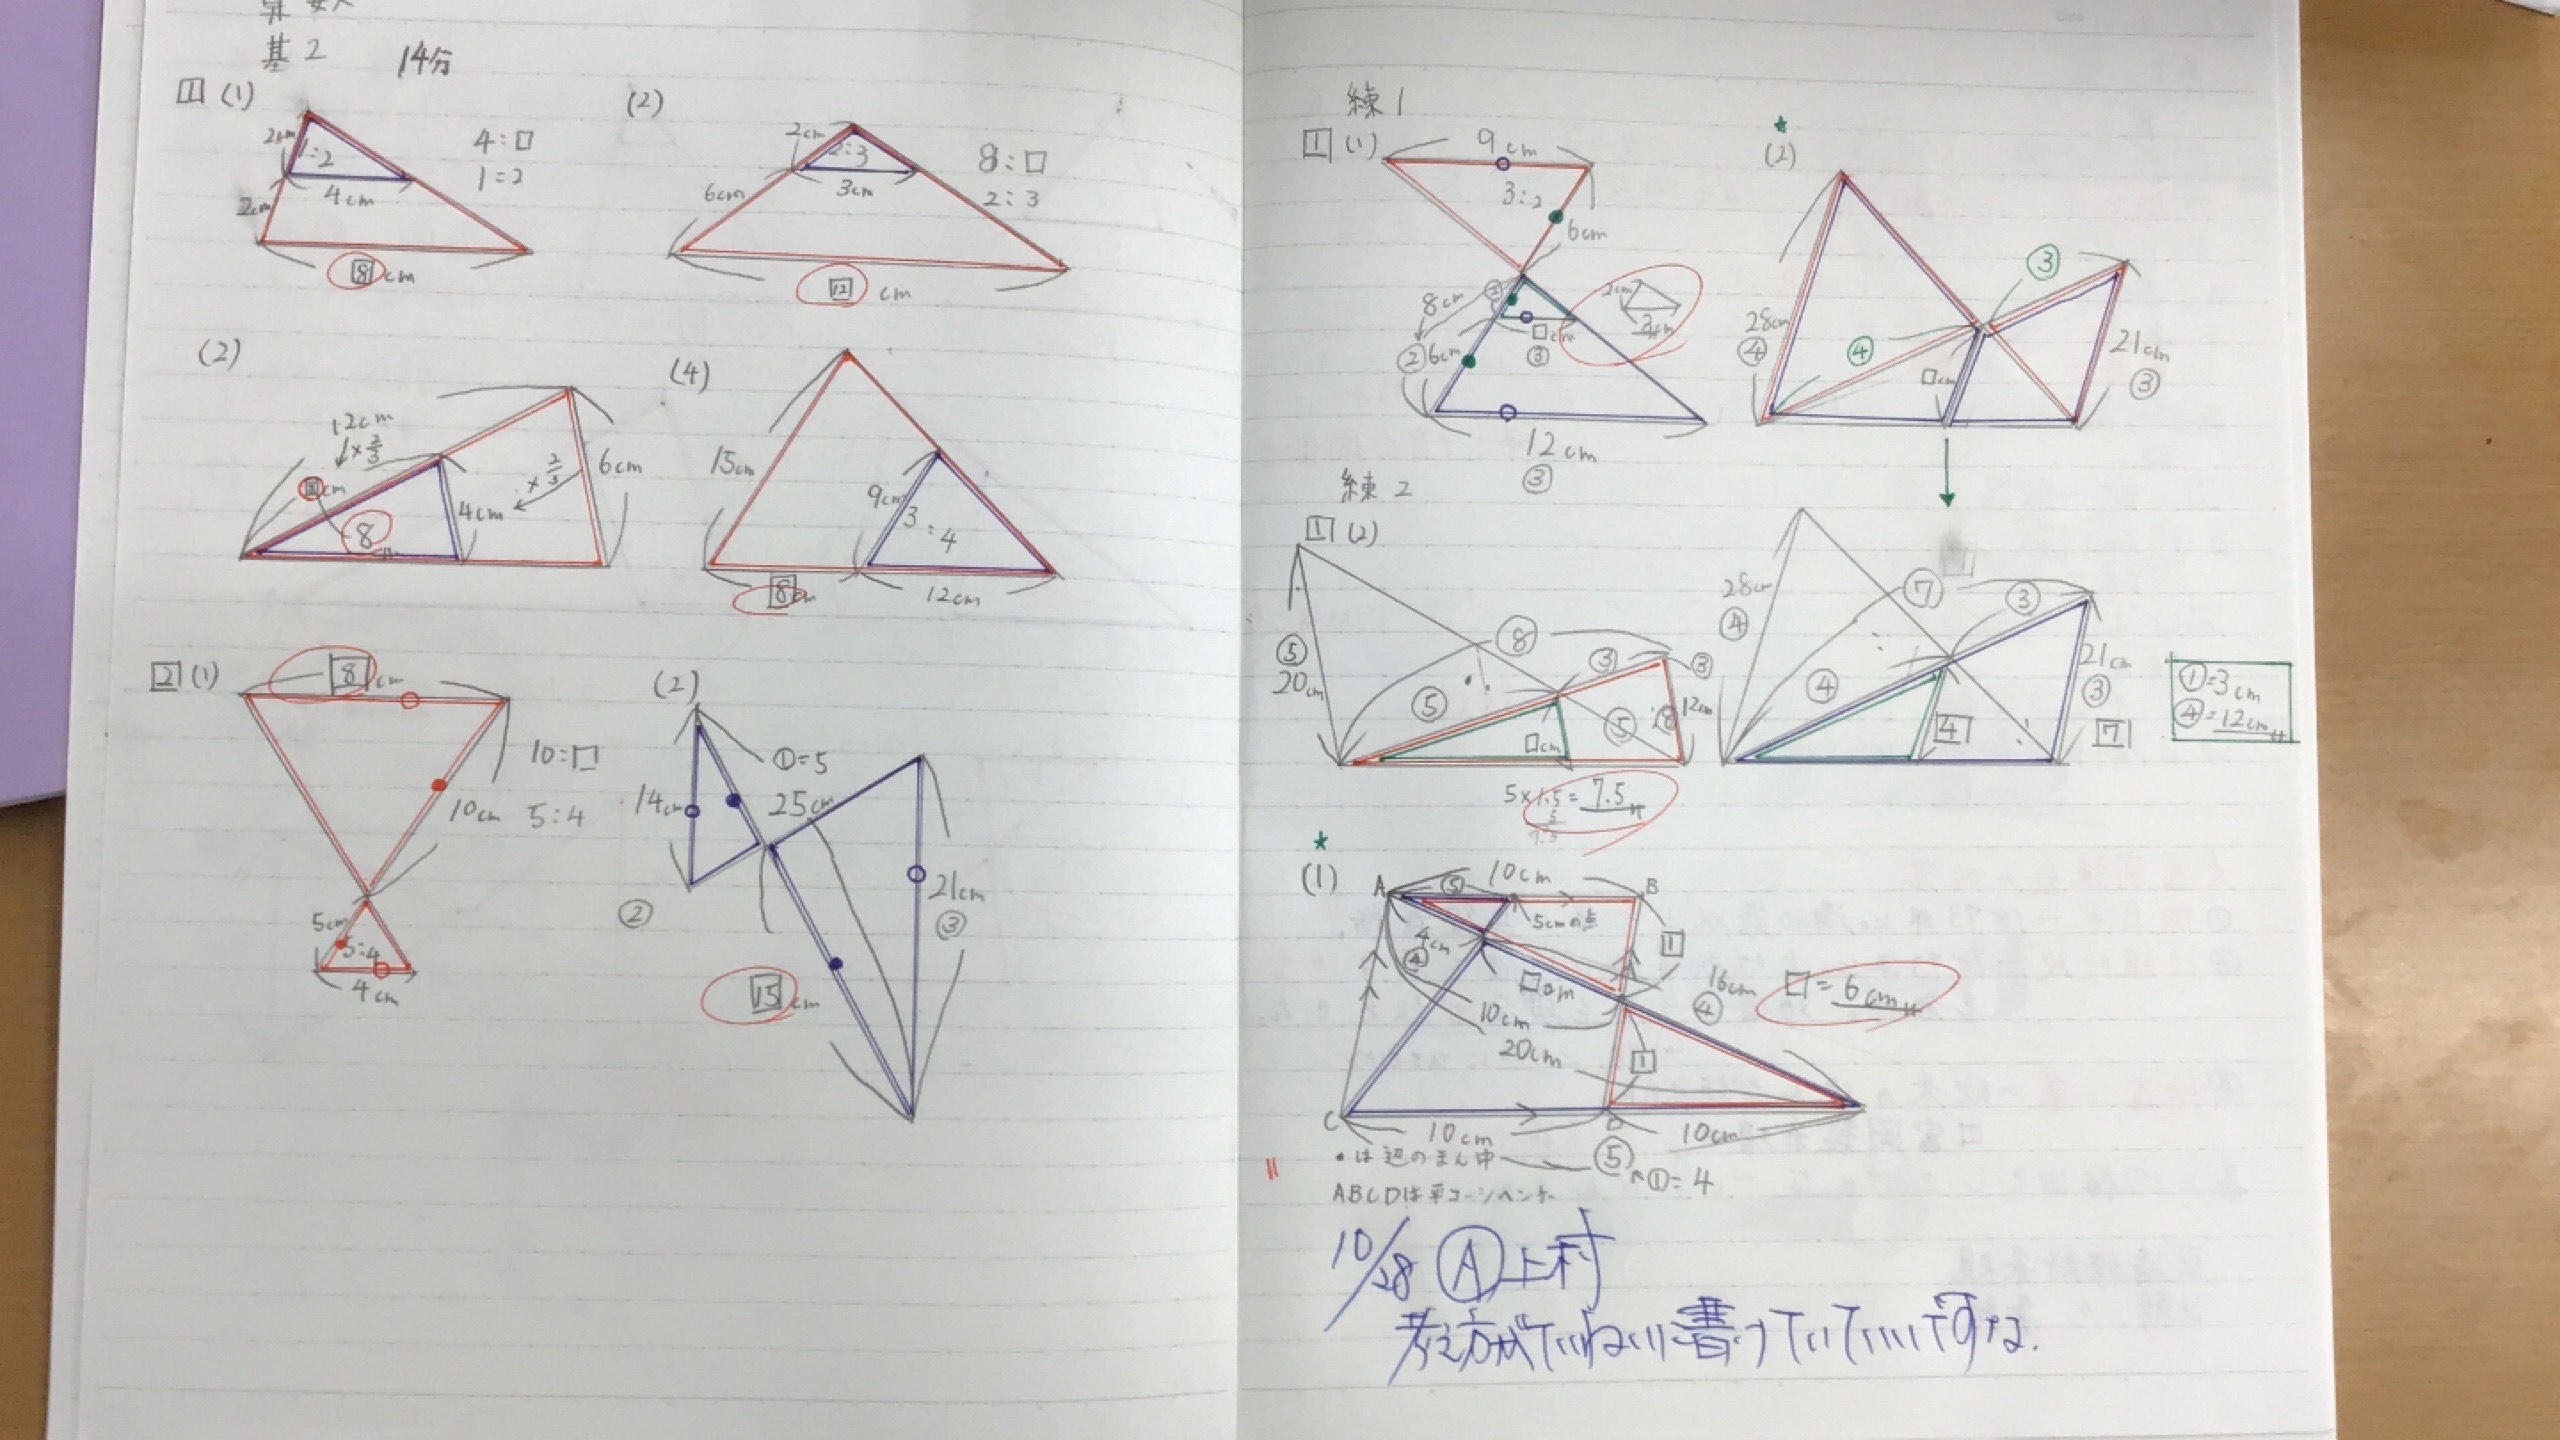 算数
基2 14分
1 (1)
2cm
1:2
4:□
1:2
4cm
2cm
8cm
(2)
2cm
2:3
8:□
2:3
3cm
6cm
12 cm
(2)
12cm
×2/3
×2/3
6cm
8cm
4cm
8
(4)
15cm
9cm
3:4
8cm
12cm
2 (1)
8cm
10:□
10cm 5:4
5cm
5:4
4cm
(2)
①=5
14cm
25cm
21cm
②
③
15cm
練1
1 (1)
9cm
3:2
6cm
8cm
②
2cm
3cm
□cm
③
② 6cm
12cm
③
★
(2)
③
28cm
④
④
21cm
③
□cm
練2
1 (2)
⑤
20cm
⑧
③
③
⑤
⑤
⑧
12cm
□cm
5×1.5=7.5
28cm
④
⑦
③
④
21cm
③
4
7
①=3cm
④=12cm
★
(1)
A
⑤
10cm
B
5cmの点
4cm
④
1
□cm
16cm
④
□=6cm
10cm
20cm
1
C
10cm
D
10cm
・は辺のまん中
⑤
①=4
ABCDは平コーシヘンケー
10/28 Ⓐ上村
考え方がていねいに書けていていいですね.